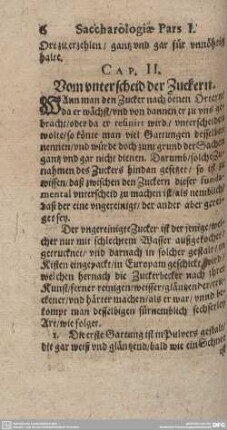 6 Saccharologiæ Pars I.
Ort zu erzehlen / gantz vnd gar für vnnöhtig
halte.
CAP. II.
Vom vnterscheid der Zuckern.
WAnn man den Zucker nach denen Orten
da er wächst/vnd von dannen er zu vns ge
bracht/oder da er refinirt wird/ vnterscheiden
wolte/so könte man viel Gattungen desselben
nennen/vnd würde doch zum grund der Sachen
gantz vnd gar nicht dienen. Darumb/solche Zu
nahmen des Zuckers hindan gesetzet/ so ist zu
wissen/daß zwischen den Zuckern dieser funda
mental vnterscheid zu machen ist/als nemblich/
daß der eine vngereinigt/der ander aber gerei
get sey.
Der vngereinigte Zucker ist der jenige/wel
cher nur mit schlechtem Wasser außgekochet/
getrucknet/vnd darnach in solcher gestalt/in
Kisten eingepackt/in Europam geschickt wird/
welchen hernach die Zuckerbecker nach ihrer
Kunst/ferner reinigen/weisser/gläntzender/tru
ckener/vnd härter machen/als er war/vnnd be
kompt man desselbigen fürnemblich sechserley
Art/wie folget.
1. Die erste Gattung ist in Pulvers gestalt/
die gar weiß vnd gläntzend/bald wie ein Schnee